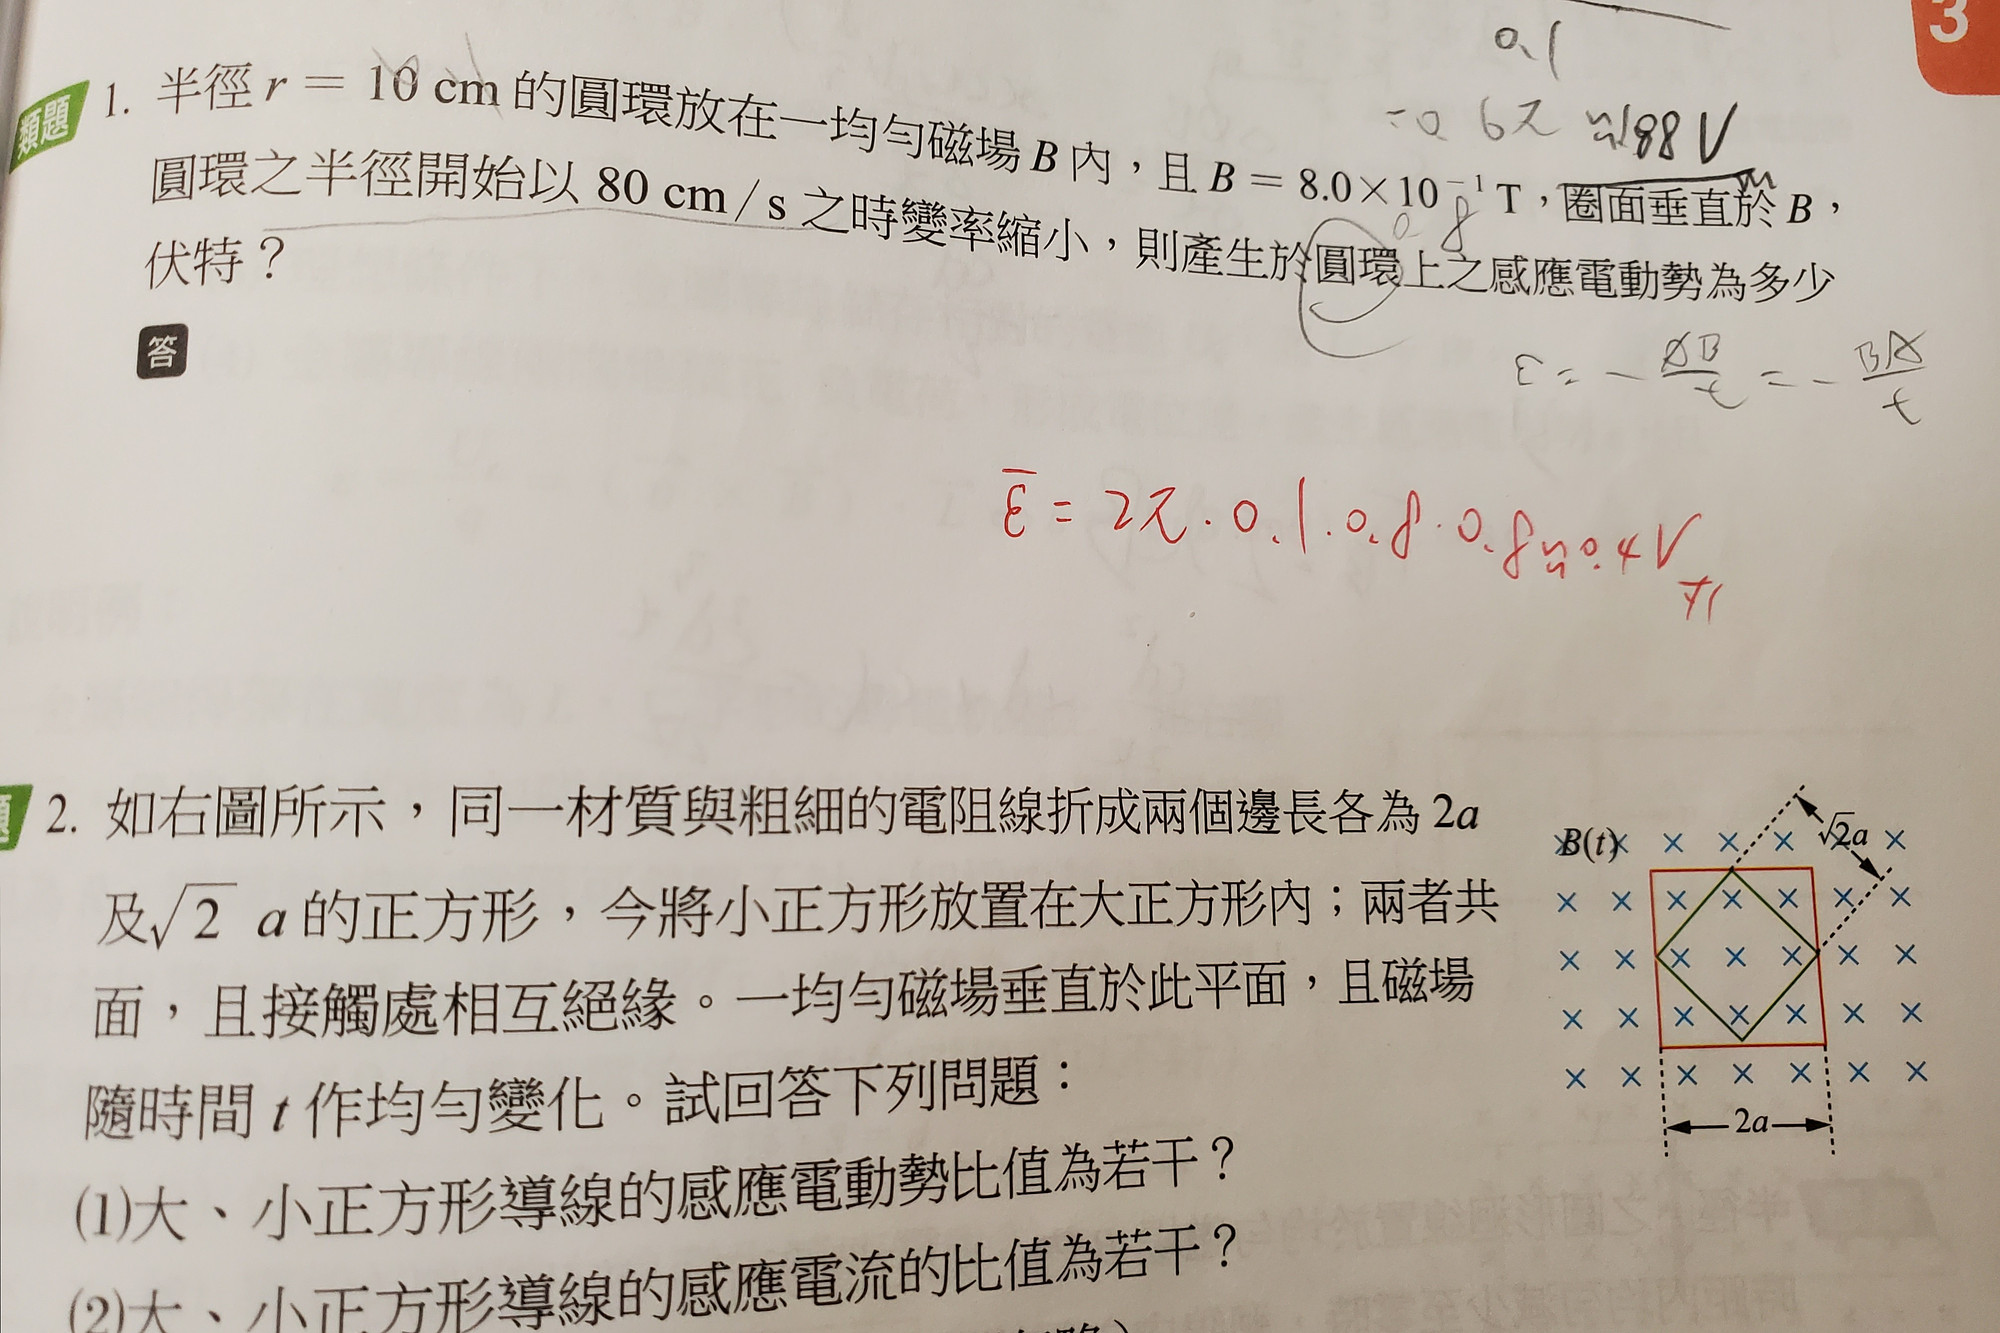 3
0.1
= 0.6π ≈ 1.88 V
類題 1. 半徑 r = 10 cm 的圓環放在一均勻磁場 B 內，且 B = 8.0×10⁻¹ T，圈面垂直於 B，
0.8
圓環之半徑開始以 80 cm / s 之時變率縮小，則產生於圓環上之感應電動勢為多少
伏特？
答
ε = -
= -
ε̄ = 2π · 0.1 · 0.8 · 0.8 ≈ 0.4 V
2. 如右圖所示，同一材質與粗細的電阻線折成兩個邊長各為 2a
及√2 a 的正方形，今將小正方形放置在大正方形內；兩者共
面，且接觸處相互絕緣。一均勻磁場垂直於此平面，且磁場
隨時間 t 作均勻變化。試回答下列問題：
(1)大、小正方形導線的感應電動勢比值為若干？
(2)大、小正方形導線的感應電流的比值為若干？
B(t)
√2a
2a